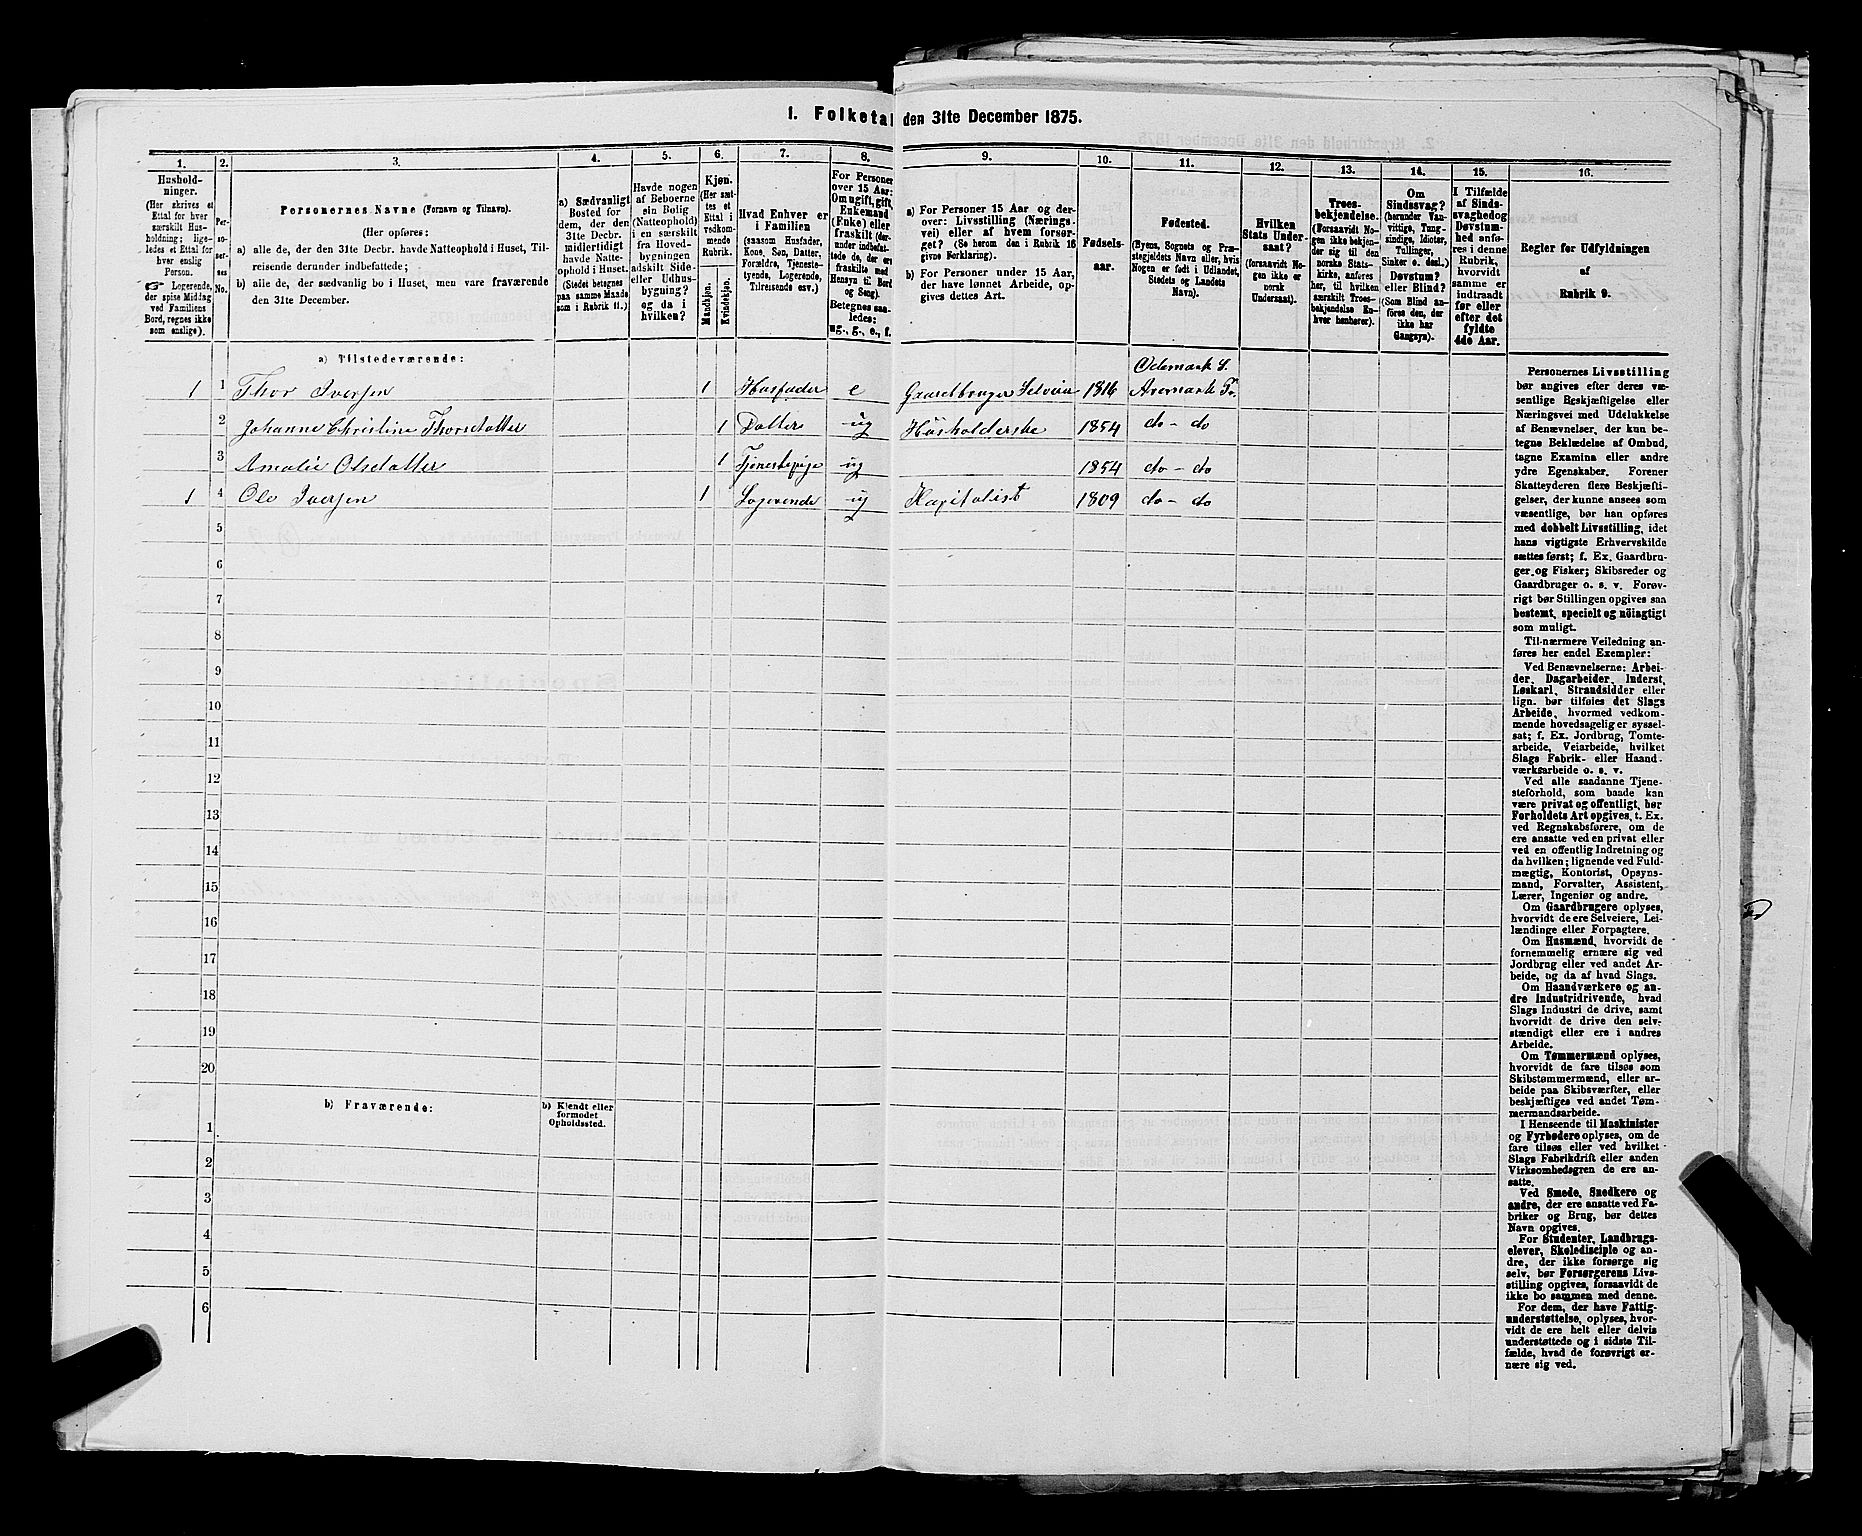 1. Folketal den 31te December 1875.
1.
2.
3.
4.
5.
6.
7.
8.
9.
10.
11.
12.
13.
14.
15.
16.
Hushold-
ninger.
(Her skrives et
Ettal for hver
særskilt Hus-
holdning; lige-
ledes et Ettal for
hver enslig
Person.
☞ Logerende,
der spise Middag
ved Familiens
Bord, regnes ikke
som enslige).
Per-
so-
ner-
nes
No.
Personernes Navne (Fornavn og Tilnavn).
(Her opføres:
a) alle de, der den 31te Decbr. havde Natteophold i Huset, Til-
reisende derunder indbefattede;
b) alle de, der sædvanlig bo i Huset, men vare fraværende
den 31te December.
a) Sædvanligt
Bosted for
dem, der den
31te Decbr.
midlertidigt
havde Natte-
ophold i Huset.
(Stedet betegnes
paa samme Maade
som i Rubrik 11.)
Havde nogen
af Beboerne
sin Bolig
(Natteophold)
i en særskilt
fra Hoved-
bygningen
adskilt Side-
eller Udhus-
bygning?
og da i
hvilken?
Kjøn.
(Her sæt-
tes et
Ettal i
vedkom-
mende
Rubrik.
Mandkjøn.
Kvindekjøn.
Hvad Enhver er
i Familien
(saasom Husfader,
Kone, Søn, Datter,
Forældre, Tjeneste-
tyende, Logerende,
Tilreisende osv.)
For Personer
over 15 Aar:
Om ugift, gift,
Enkemand
(Enke) eller
fraskilt (der-
under indbefat-
tede de, der ere
fraskilte med
Hensyn til Bord
og Seng).
Betegnes saa-
ledes:
ug., g., e., f.
a) For Personer 15 Aar og der-
over: Livsstilling (Nærings-
vei) eller af hvem forsør-
get? (Se herom den i Rubrik 16
givne Forklaring).
b) For Personer under 15 Aar,
der have lønnet Arbeide, op-
gives dettes Art.
Fødsels-
aar.
Fødested.
(Byens, Sognets og Præ-
stegjeldets Navn eller, hvis
Nogen er født i Udlandet,
Stedets og Landets
Navn).
Hvilken
Stats Under-
saat?
(forsaavidt No-
gen ikke er
norsk
Undersaat).
Troes-
bekjendelse.
(Forsaavidt No-
gen ikke bekjen-
der sig til den
norske Stats-
kirke, anføres
her, til hvilken
særskilt Troes-
bekjendelse En-
hver henhører).
Om
Sindssvag?
(herunder Van-
vittige, Tung-
sindige, Idioter,
Tullinger,
Sinker o. desl.)
Døvstum?
eller Blind?
(Som Blind an-
føres den, der
ikke har
Gangsyn).
I Tilfælde
af Sinds-
svaghed og
Døvstum-
hed anfø-
res i denne
Rubrik,
hvorvidt
samme er
indtraadt
før eller
efter det
fyldte
4de Aar.
Regler for Udfyldningen
af
Rubrik 9.
a) Tilstedeværende:
Odemark S.
1 1 Thor Iversen 1 Husfader e Gaardbruger Selveier 1816 Aremark Pr.
2 Johanne Christine Thorsdatter 1 Datter ug Husholderske 1854 do - do
3 Amalie Olsdatter 1 Tjenestepige ug 1854 do - do
1 4 Ole Iversen 1 Logerende ug Kapitalist 1809 do - do
5
6
7
8
9
10
11
12
13
14
15
16
17
18
19
20
b) Fraværende:
b) Kjendt eller
formodet
Opholdssted.
1
2
3
4
5
6
Personernes Livsstilling
bør angives efter deres væ-
sentlige Beskjæftigelse eller
Næringsvei med Udelukkelse
af Benævnelser, der kun be-
tegne Beklædelse af Ombud,
tagne Examina eller andre
ydre Egenskaber. Forener
Skatteyderen flere Beskjæfti-
gelser, der kunne ansees som
væsentlige, bør han opføres
med dobbelt Livsstilling, idet
hans vigtigste Erhvervskilde
sættes først; f. Ex. Gaardbru-
ger og Fisker; Skibsreder og
Gaardbruger o. s. v. Forøv-
rigt bør Stillingen opgives saa
bestemt, specielt og nöiagtigt
som muligt.
Til nærmere Veiledning an-
føres her endel Exempler:
Ved Benævnelserne: Arbei-
der, Dagarbeider, Inderst,
Løskarl, Strandsidder eller
lign. bør tilføies det Slags
Arbeide, hvormed vedkom-
mende hovedsagelig er syssel-
sat; f. Ex. Jordbrug, Tomte-
arbeide, Veiarbeide, hvilket
Slags Fabrik- eller Haand-
værksarbeide o. s. v.
Ved alle saadanne Tjene-
steforhold, som baade kan
være privat og offentligt, bør
Forholdets Art opgives, t. Ex.
ved Regnskabsførere, om de
ere ansatte ved en privat eller
ved en offentlig Indretning og
da hvilken; lignende ved Fuld-
mægtig, Kontorist, Opsyns-
mand, Forvalter, Assistent,
Lærer, Ingeniør og andre.
Om Gaardbrugere oplyses,
hvorvidt de ere Selveiere, Lei-
lændinge eller Forpagtere.
Om Husmænd, hvorvidt de
fornemmelig ernære sig ved
Jordbrug eller ved andet Ar-
beide, og da af hvad Slags.
Om Haandværkere og an-
dre Industridrivende, hvad
Slags Industri de drive, samt
hvorvidt de drive den selv-
stændigt eller ere i andres
Arbeide.
Om Tømmermænd oplyses,
hvorvidt de fare tilsøs som
Skibstømmermænd, eller ar-
beide paa Skibsværfter, eller
beskjæftiges ved andet Tøm-
mermandsarbeide.
I Henseende til Maskinister
og Fyrbødere oplyses, om de
fare tilsøs eller ved hvilket
Slags Fabrikdrift eller anden
Virksomhedsgren de ere an-
satte.
Ved Smede, Snedkere og
andre, der ere ansatte ved Fa-
briker og Brug, bør dettes
Navn opgives.
For Studenter, Landbrugs-
elever, Skoledisciple og an-
dre, der ikke forsørge sig
selv, bør Forsørgerens Livs-
stilling opgives, forsaavidt de
ikke bo sammen med denne.
For dem, der have Fattig-
understøttelse, oplyses, hvor-
vidt de ere helt eller delvis
understøttede og i sidste Til-
fælde, hvad de forøvrigt er-
nære sig ved.